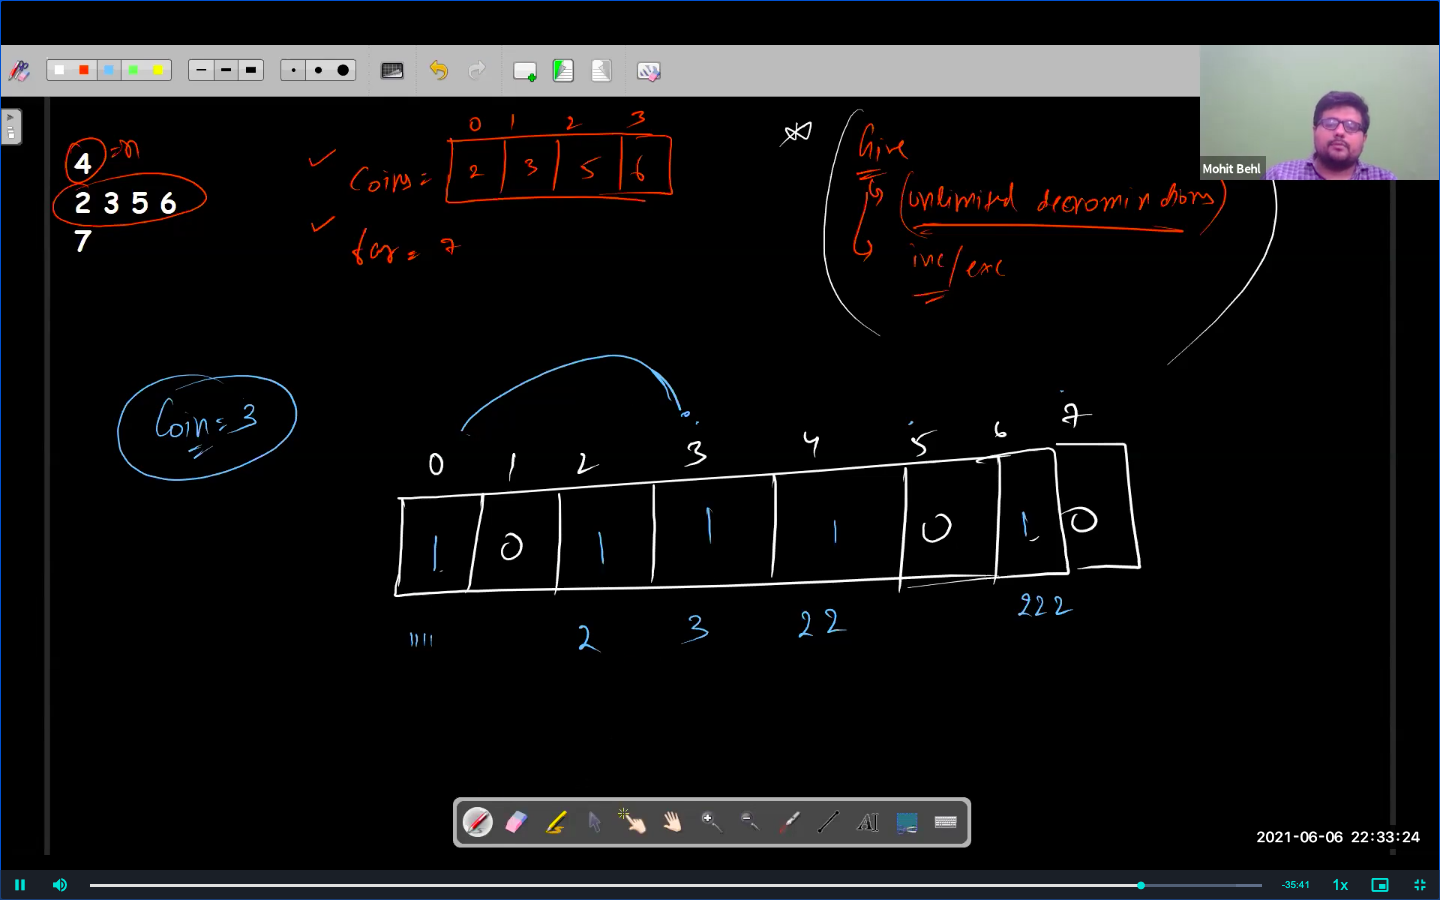 Mohit Behl
4 = n
2 3 5 6
7
0 1 2 3
Coins = 2 3 5 6
tar = 7
Give
(unlimited denominations)
inc/exc
Coin = 3
0 1 2 3 4 5 6 7
1 0 1 1 1 0 1 0
2 3 22 222
AI
2021-06-06 22:33:24
-35:41 1x